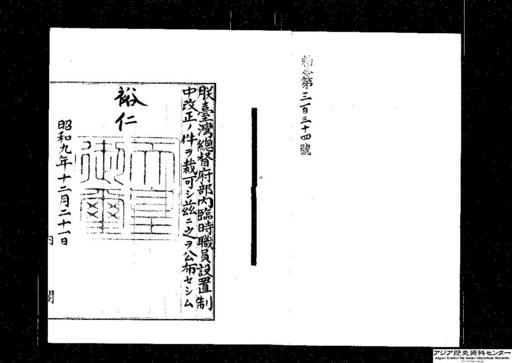 勅令第三百三十四號
朕臺灣總督府部內臨時職員設置制
中改正ノ件ヲ裁可シ茲ニ之ヲ公布セシム
裕仁
天皇御璽
昭和九年十二月二十一日
內閣
アジア歴史資料センター
Japan Center for Asian Historical Records